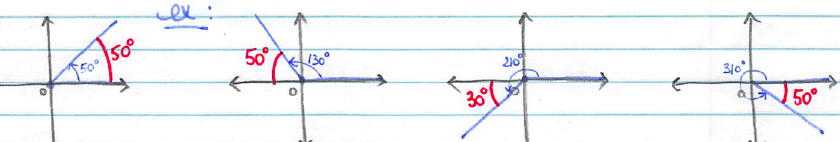 ex:
50° 50°
50° 130°
210° 30°
310° 50°